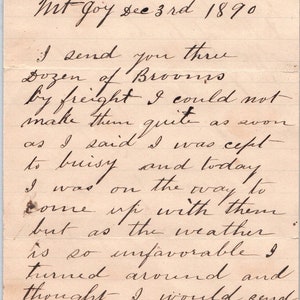 Mt Joy Dec 3rd 1890
I send you thre
Dozen of Brooms
by freight I could not
make them quite as soon
as I said I was cept
to buisy and today
I was on the way to
come up with them
but as the weather
is so unfavorable I
turned around and
thought I would send